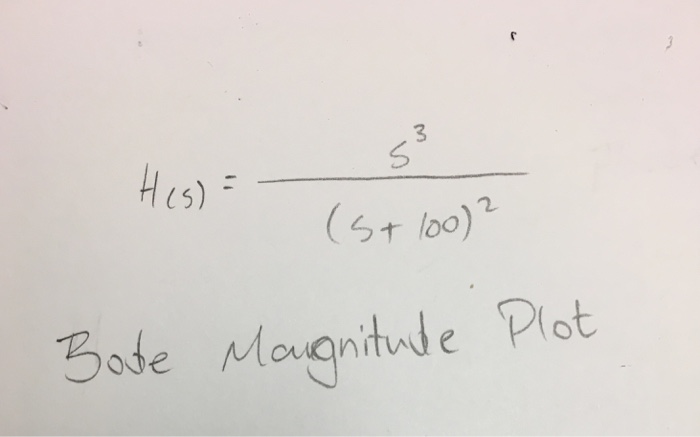 H(s) = s^3 / (s + 100)^2
Bode Magnitude Plot